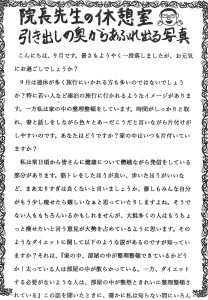 院長先生の休憩室
引き出しの奥からあふれ出る写真
こんにちは、9月です。暑さもようやく一段落しましたが、お元気
にお過ごしでしょうか？
9月は連休が多く旅行にいかれる方も多いのではないでしょう
か？特に若い人など連泊の旅行に行かれるようなイメージがありま
す。一方私は家の中の整理整頓をしています。時間がしっかりと取
れ、妻と話しをしながら色々とあーだこうだと言いながら片付けが
しやすいのです。あなたはどうですか？家の中はいつも片付いてい
ますか？
私は常日頃から皆さんに健康について僭越ながら発信をしている
部分があります。筋トレをしたほうが良い、歩いたほうがいいな
ど、まあ太りすぎは良くないと言いましょうか、誰しもみんな自分
がもう少し痩せたら嬉しいなぁと思っていたりしますよね。そうで
ない人ももちろんいるかもしれませんが、大抵多くの人はもうちょ
っと痩せたいと言う意見が大勢を占めているように思います。その
ようなダイエットに関して以下のような説があるのですが知ってい
ますか？それは、『家の中、部屋の中が整理整頓できているかどう
か！太っている人は部屋の中が散らかっている。一方、ダイエット
する必要がないような人は、部屋の中が整然ときれいに整理整頓され
ている』この話を聞いたときに、確かに私は知らない間にいろん